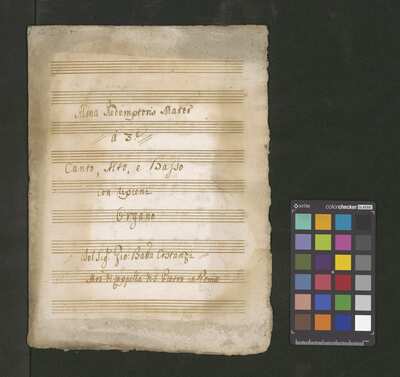 Alma Redemptoris Mater
à 3.
Canto, Alto, e Basso
con ripieni
Organo
Del Sig.r Gio: Batta Costanzi
Mro di Cappella di S. Pietro in
x-rite colorchecker CLASSIC